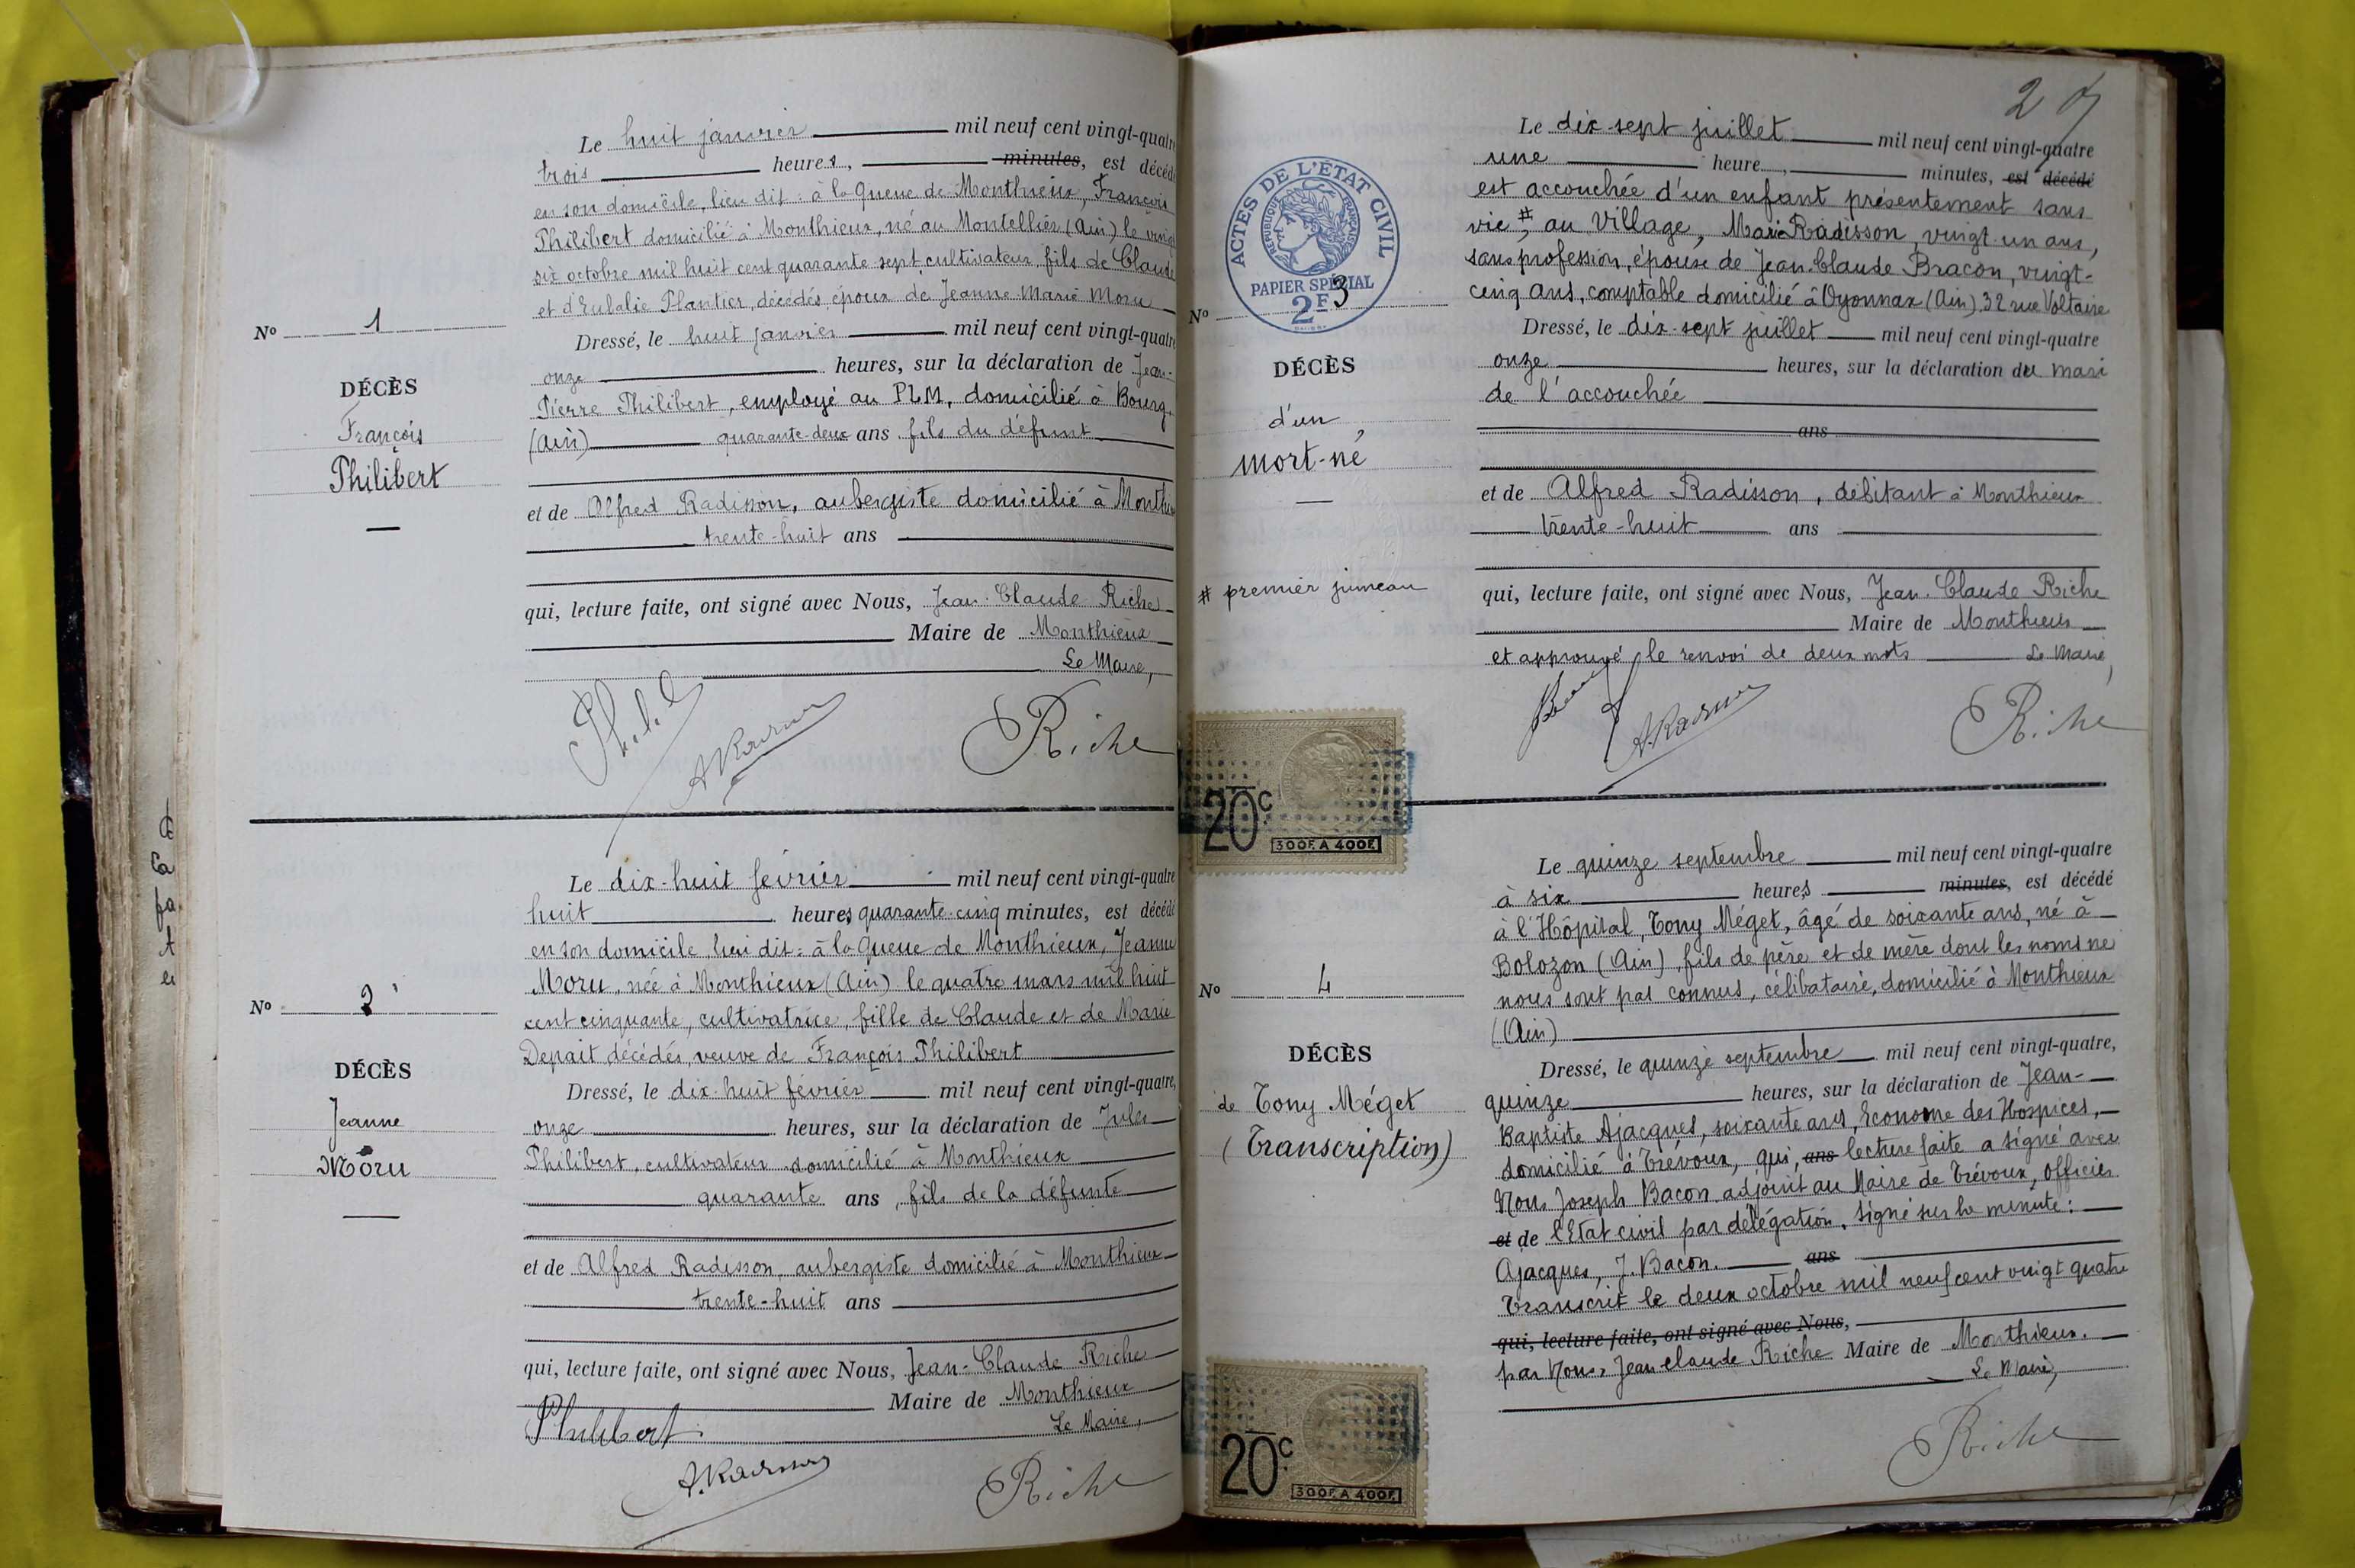 Le huit janvier mil neuf cent vingt-quatre
trois heures, minutes, est décédé
en son domicile, lieu dit : à la Queue de Monthieux, François
Philibert domicilié à Monthieux, né au Montellier (Ain) le vingt
six octobre mil huit cent quarante sept, cultivateur, fils de Claude
et d'Eulalie Plantier, décédés, époux de Jeanne Marie Moru
Nº 1
Dressé, le huit janvier mil neuf cent vingt-quatre
onze heures, sur la déclaration de Jean-
DÉCÈS
Pierre Philibert, employé au PLM, domicilié à Bourg
François
(Ain) quarante-deux ans fils du défunt
Philibert
et de Alfred Radisson, aubergiste domicilié à Monthieux
trente-huit ans
qui, lecture faite, ont signé avec Nous, Jean-Claude Riche
Maire de Monthieux
Le Maire,
Riche
Le dix-huit février mil neuf cent vingt-quatre
huit heures quarante-cinq minutes, est décédé
en son domicile, lieu dit : à la Queue de Monthieux, Jeanne
Moru, née à Monthieux (Ain) le quatre mars mil huit
Nº 2
cent cinquante, cultivatrice, fille de Claude et de Marie
Depait, décédés, veuve de François Philibert
DÉCÈS
Dressé, le dix-huit février mil neuf cent vingt-quatre,
Jeanne
onze heures, sur la déclaration de Jules
Moru
Philibert, cultivateur domicilié à Monthieux
quarante ans, fils de la défunte
et de Alfred Radisson, aubergiste domicilié à Monthieux
trente-huit ans
qui, lecture faite, ont signé avec Nous, Jean-Claude Riche
Maire de Monthieux
Le Maire,
Philibert
Riche
2
Le dix-sept juillet mil neuf cent vingt-quatre
une heure, minutes, est décédé
est accouchée d'un enfant présentement sans
vie #, au Village, Marie Radisson, vingt-un ans,
sans profession, épouse de Jean-Claude Bracon, vingt-
cinq ans, comptable domicilié à Oyonnax (Ain) 32 rue Voltaire
ACTES DE L'ÉTAT CIVIL
RÉPUBLIQUE FRANÇAISE
PAPIER SPÉCIAL
2F
Nº 3
Dressé, le dix-sept juillet mil neuf cent vingt-quatre
onze heures, sur la déclaration du mari
DÉCÈS
de l'accouchée
d'un
ans
mort-né
et de Alfred Radisson, débitant à Monthieux
trente-huit ans
# premier jumeau
qui, lecture faite, ont signé avec Nous, Jean-Claude Riche
Maire de Monthieux
et approuvé le renvoi de deux mots Le Maire,
Riche
20c
300F A 400F
Le quinze septembre mil neuf cent vingt-quatre
à six heures minutes, est décédé
à l'Hôpital, Tony Méget, âgé de soixante ans, né à
Bolozon (Ain), fils de père et de mère dont les noms ne
nous sont pas connus, célibataire, domicilié à Monthieux
(Ain)
Nº 4
Dressé, le quinze septembre mil neuf cent vingt-quatre,
DÉCÈS
quinze heures, sur la déclaration de Jean-
de Tony Méget
Baptiste Ajacques, soixante ans, Econome des Hospices,
(Transcription)
domicilié à Trévoux, qui, ans lecture faite a signé avec
Nous Joseph Bacon adjoint au Maire de Trévoux, officier
et de l'Etat civil par délégation. Signé sur la minute :
Ajacques, J. Bacon. ans
Transcrit le deux octobre mil neuf cent vingt quatre
qui, lecture faite, ont signé avec Nous,
par Nous, Jean Claude Riche Maire de Monthieux.
Le Maire,
Riche
20c
300F A 400F